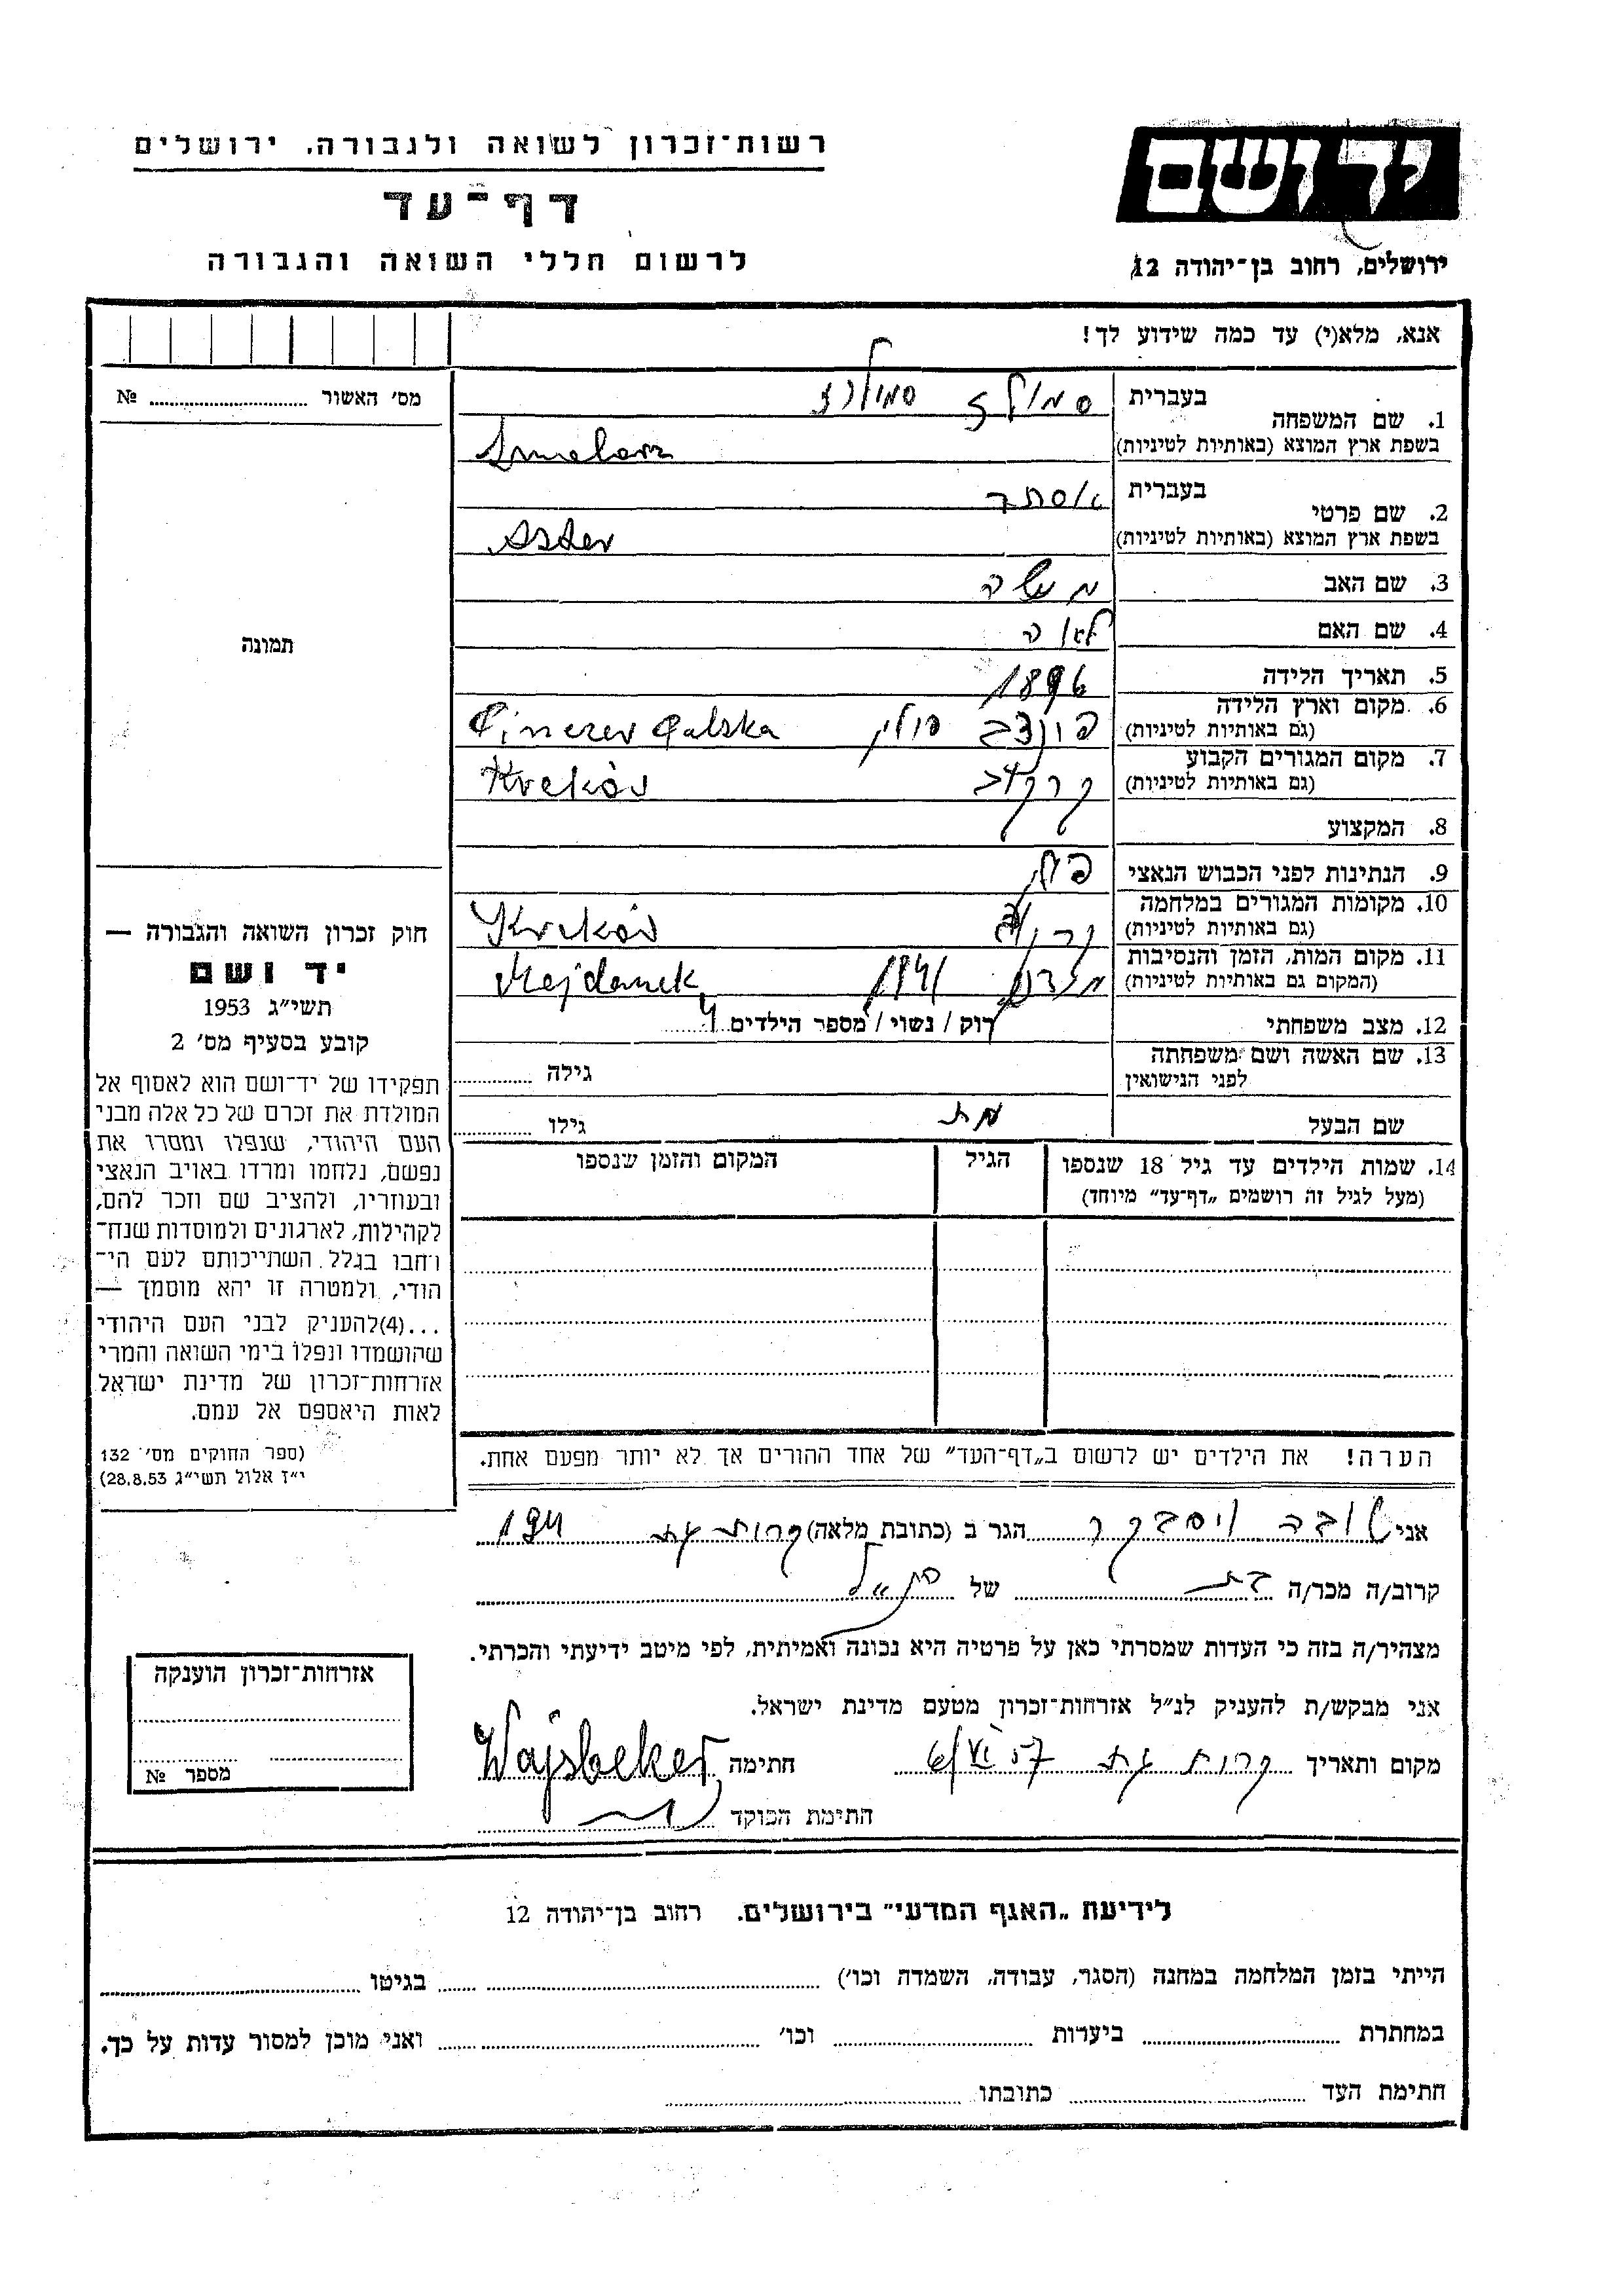 רשות־זכרון לשואה ולגבורה, ירושלים
יד ושם
דף־עד
לרשום חללי השואה והגבורה
ירושלים, רחוב בן־יהודה 12
אנא, מלא(י) עד כמה שידוע לך!
מס׳ האשור № 
1. שם המשפחה
בעברית סמולרז
בשפת ארץ המוצא (באותיות לטיניות) Smolarz
2. שם פרטי
בעברית אסתר
בשפת ארץ המוצא (באותיות לטיניות) Ester
3. שם האב משה
4. שם האם לאה
5. תאריך הלידה 1896
6. מקום וארץ הלידה
(גם באותיות לטיניות) פולין
7. מקום המגורים הקבוע
(גם באותיות לטיניות) Krakóv
8. המקצוע
9. הנתינות לפני הכבוש הנאצי
10. מקומות המגורים במלחמה
(גם באותיות לטיניות) Krakóv
11. מקום המות, הזמן והנסיבות
(המקום גם באותיות לטיניות) 1941 Majdanek
12. מצב משפחתי רוק / נשוי / מספר הילדים 4
13. שם האשה ושם משפחתה
לפני הנישואין גילה
שם הבעל מת גילו
14. שמות הילדים עד גיל 18 שנספו הגיל המקום והזמן שנספו
(מעל לגיל זה רושמים „דף־עד״ מיוחד)
תמונה
חוק זכרון השואה והגבורה —
יד ושם
תשי״ג 1953
קובע בסעיף מס׳ 2
תפקידו של יד־ושם הוא לאסוף אל
המולדת את זכרם של כל אלה מבני
העם היהודי, שנפלו ומסרו את
נפשם, נלחמו ומרדו באויב הנאצי
ובעוזריו, ולהציב שם וזכר להם,
לקהילות, לארגונים ולמוסדות שנח־
רחבו בגלל השתייכותם לעם הי־
הודי, ולמטרה זו יהא מוסמך —
...(4)להעניק לבני העם היהודי
שהושמדו ונפלו בימי השואה והמרי
אזרחות־זכרון של מדינת ישראל
לאות היאספם אל עמם.
(ספר החוקים מס׳ 132
י״ז אלול תשי״ג 28.8.53)
הערה! את הילדים יש לרשום ב„דף־העד״ של אחד ההורים אך לא יותר מפעם אחת.
אני טובה ויסבקר הגר ב (כתובת מלאה) קרית גת 194
קרוב/ה מכר/ה בת של הנ״ל
מצהיר/ה בזה כי העדות שמסרתי כאן על פרטיה היא נכונה ואמיתית, לפי מיטב ידיעתי והכרתי.
אני מבקש/ת להעניק לנ״ל אזרחות־זכרון מטעם מדינת ישראל.
מקום ותאריך קרית גת 6/VI 57 חתימה Wajsbeker
חתימת הפוקד
אזרחות־זכרון הוענקה
מספר №
לידיעת „האגף המדעי״ בירושלים. רחוב בן־יהודה 12
הייתי בזמן המלחמה במחנה (הסגר, עבודה, השמדה וכו׳) בגיטו
במחתרת ביערות וכו׳ ואני מוכן למסור עדות על כך.
חתימת העד כתובתו